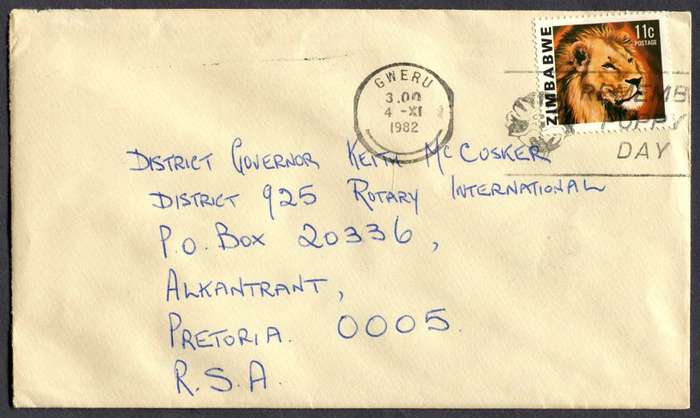 ZIMBABWE
11c
POSTAGE
GWERU
3.00
4 -XI
1982
REMEMB
POPPY
DAY
DISTRICT GOVERNOR KEITH McCOSKER
DISTRICT 925 ROTARY INTERNATIONAL
P.O. BOX 20336,
ALKANTRANT,
PRETORIA. 0005.
R.S.A.